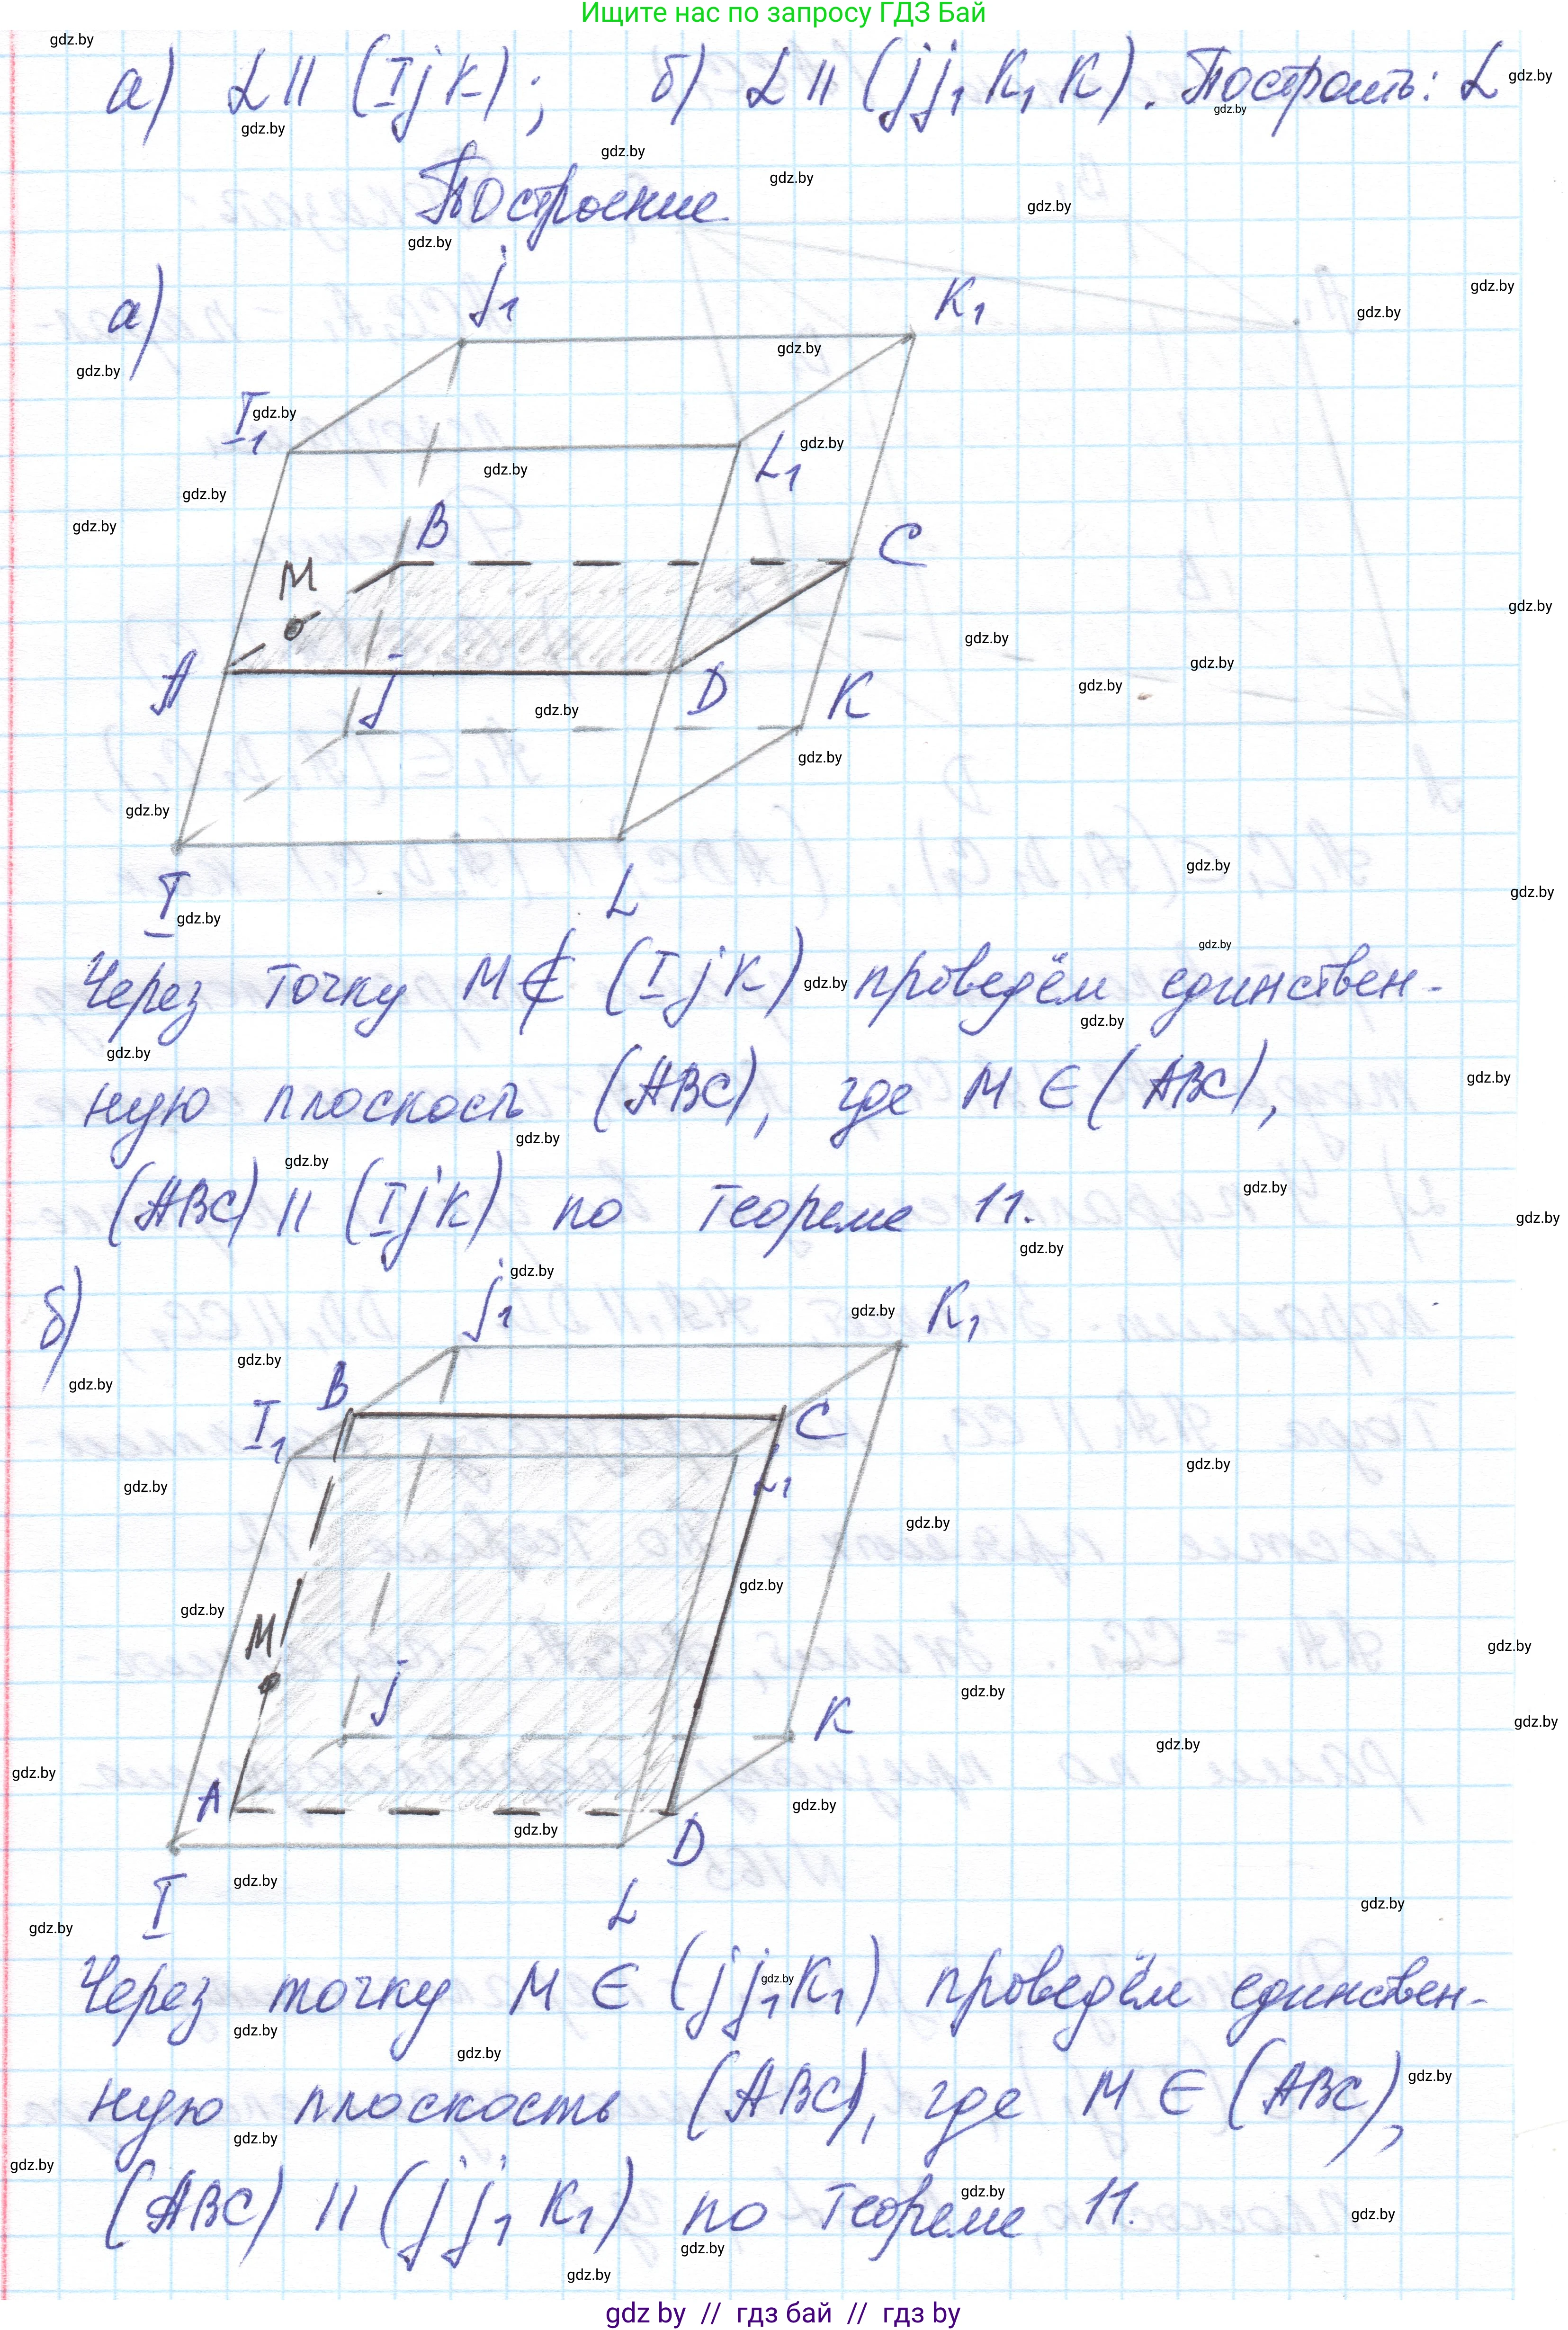 Ищите нас по запросу ГДЗ Бай
а) L || (IjK); б) L || (jj₁K₁K). Построить: L
Построение
а)
j₁
K₁
I₁
L₁
B
C
M
A
j
D
K
I
L
Через точку M ∉ (IjK) проведём единствен-
ную плоскость (ABC), где M ∈ (ABC),
(ABC) || (IjK) по теореме 11.
б)
j₁
K₁
B
I₁
C
L₁
M
j
K
A
D
I
L
Через точку M ∈ (jj₁K₁) проведём единствен-
ную плоскость (ABC), где M ∈ (ABC),
(ABC) || (jj₁K₁) по теореме 11.
gdz by // гдз бай // гдз by